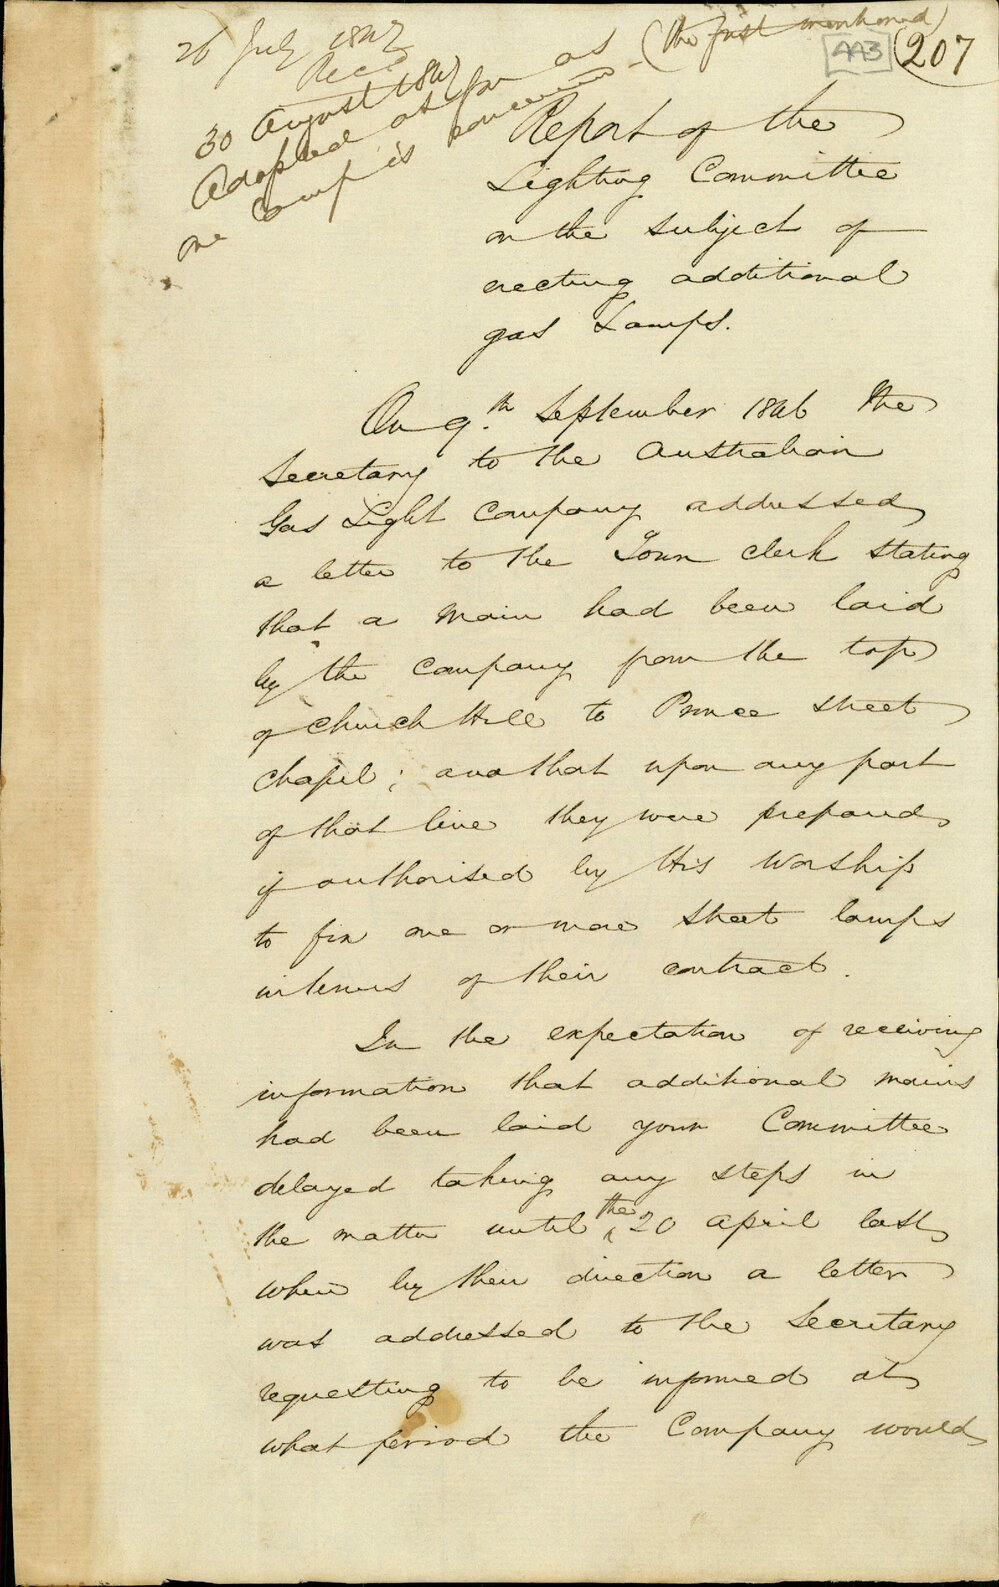 26 July 1847
Recd
30 August 1847
Adopted as far as
one Lamp is concerned - (the first mentioned)
443
207
Report of the
Lighting Committee
on the subject of
erecting additional
gas Lamps.
On 9.th September 1846 the
Secretary to the Australian
Gas Light Company addressed
a letter to the Town Clerk stating
that a main had been laid
by the Company from the top
of Church Hill to Prince Street
Chapel; and that upon any part
of that line they were prepared,
if authorised by His Worship
to fix one or more Street lamps
in terms of their contract.
In the expectation of receiving
information that additional mains
had been laid your Committee
delayed taking any steps in
the matter until the 20 April last,
when by their direction a letter
was addressed to the Secretary
requesting to be informed at
what period the Company would